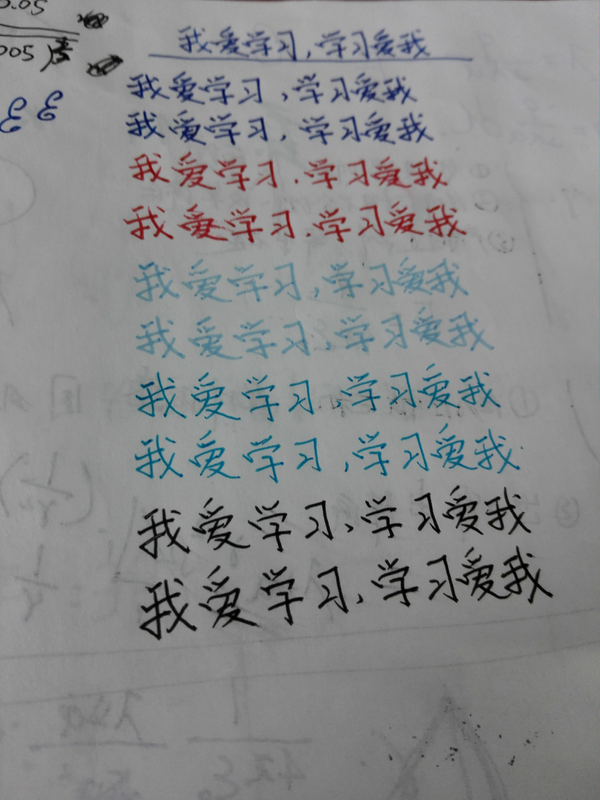 0.05
005
我爱学习,学习爱我
我爱学习,学习爱我
我爱学习,学习爱我
我爱学习.学习爱我
我爱学习.学习爱我
我爱学习,学习爱我
我爱学习.学习爱我
我爱学习,学习爱我
我爱学习,学习爱我
我爱学习、学习爱我
我爱学习.学习爱我